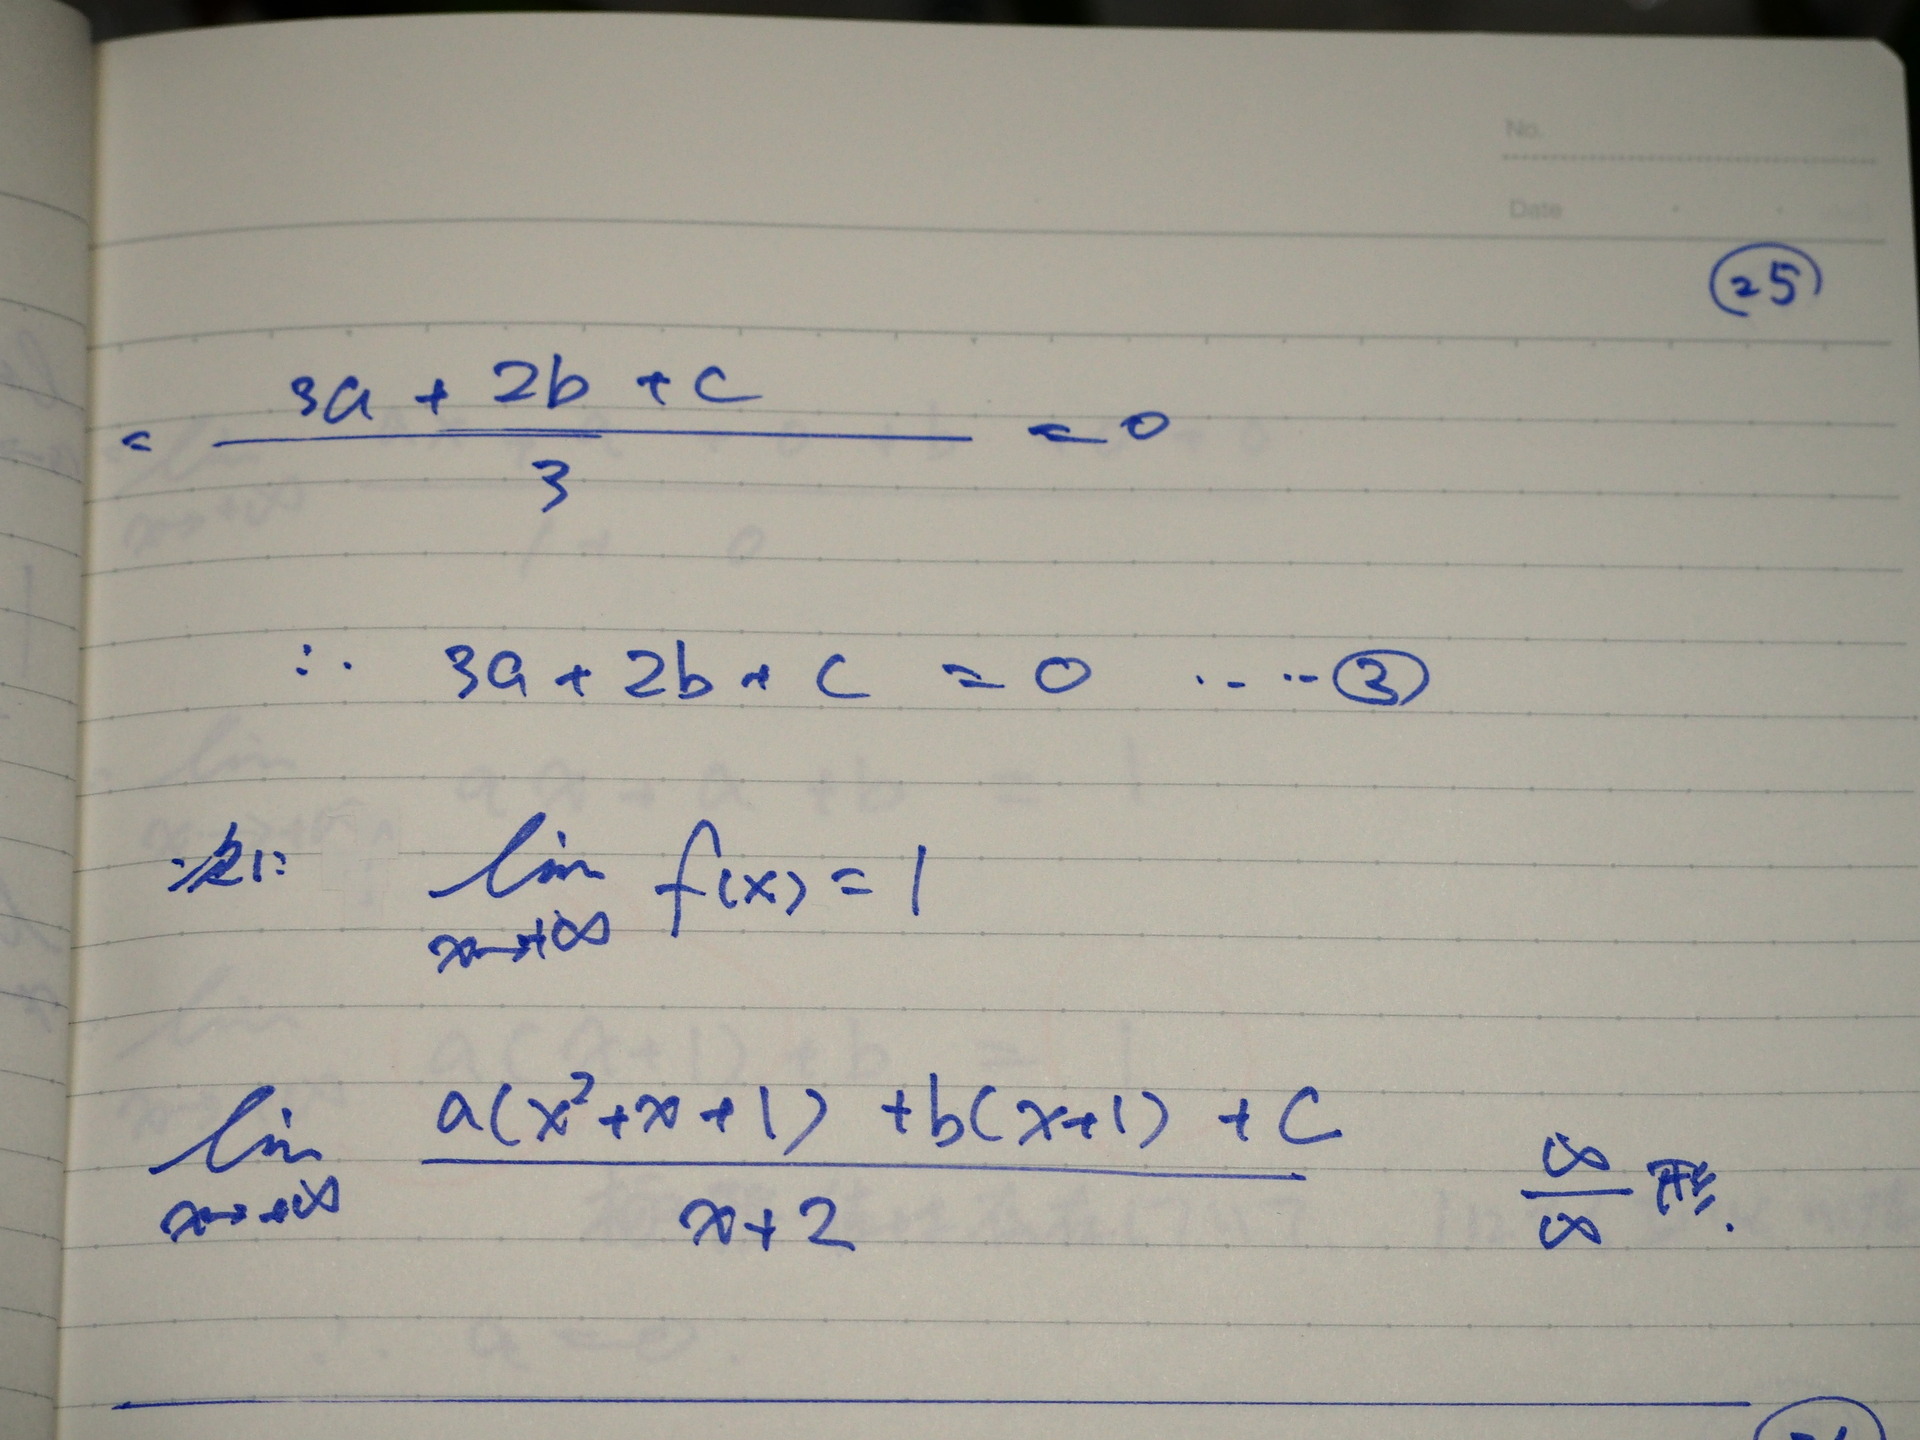 No.
Date
㉕
= (3a + 2b + c) / 3 = 0
∴ 3a + 2b + c = 0 ..... ③
次に lim x→+∞ f(x) = 1
lim x→+∞ (a(x²+x+1) + b(x+1) + c) / (x+2) ∞/∞ 形.